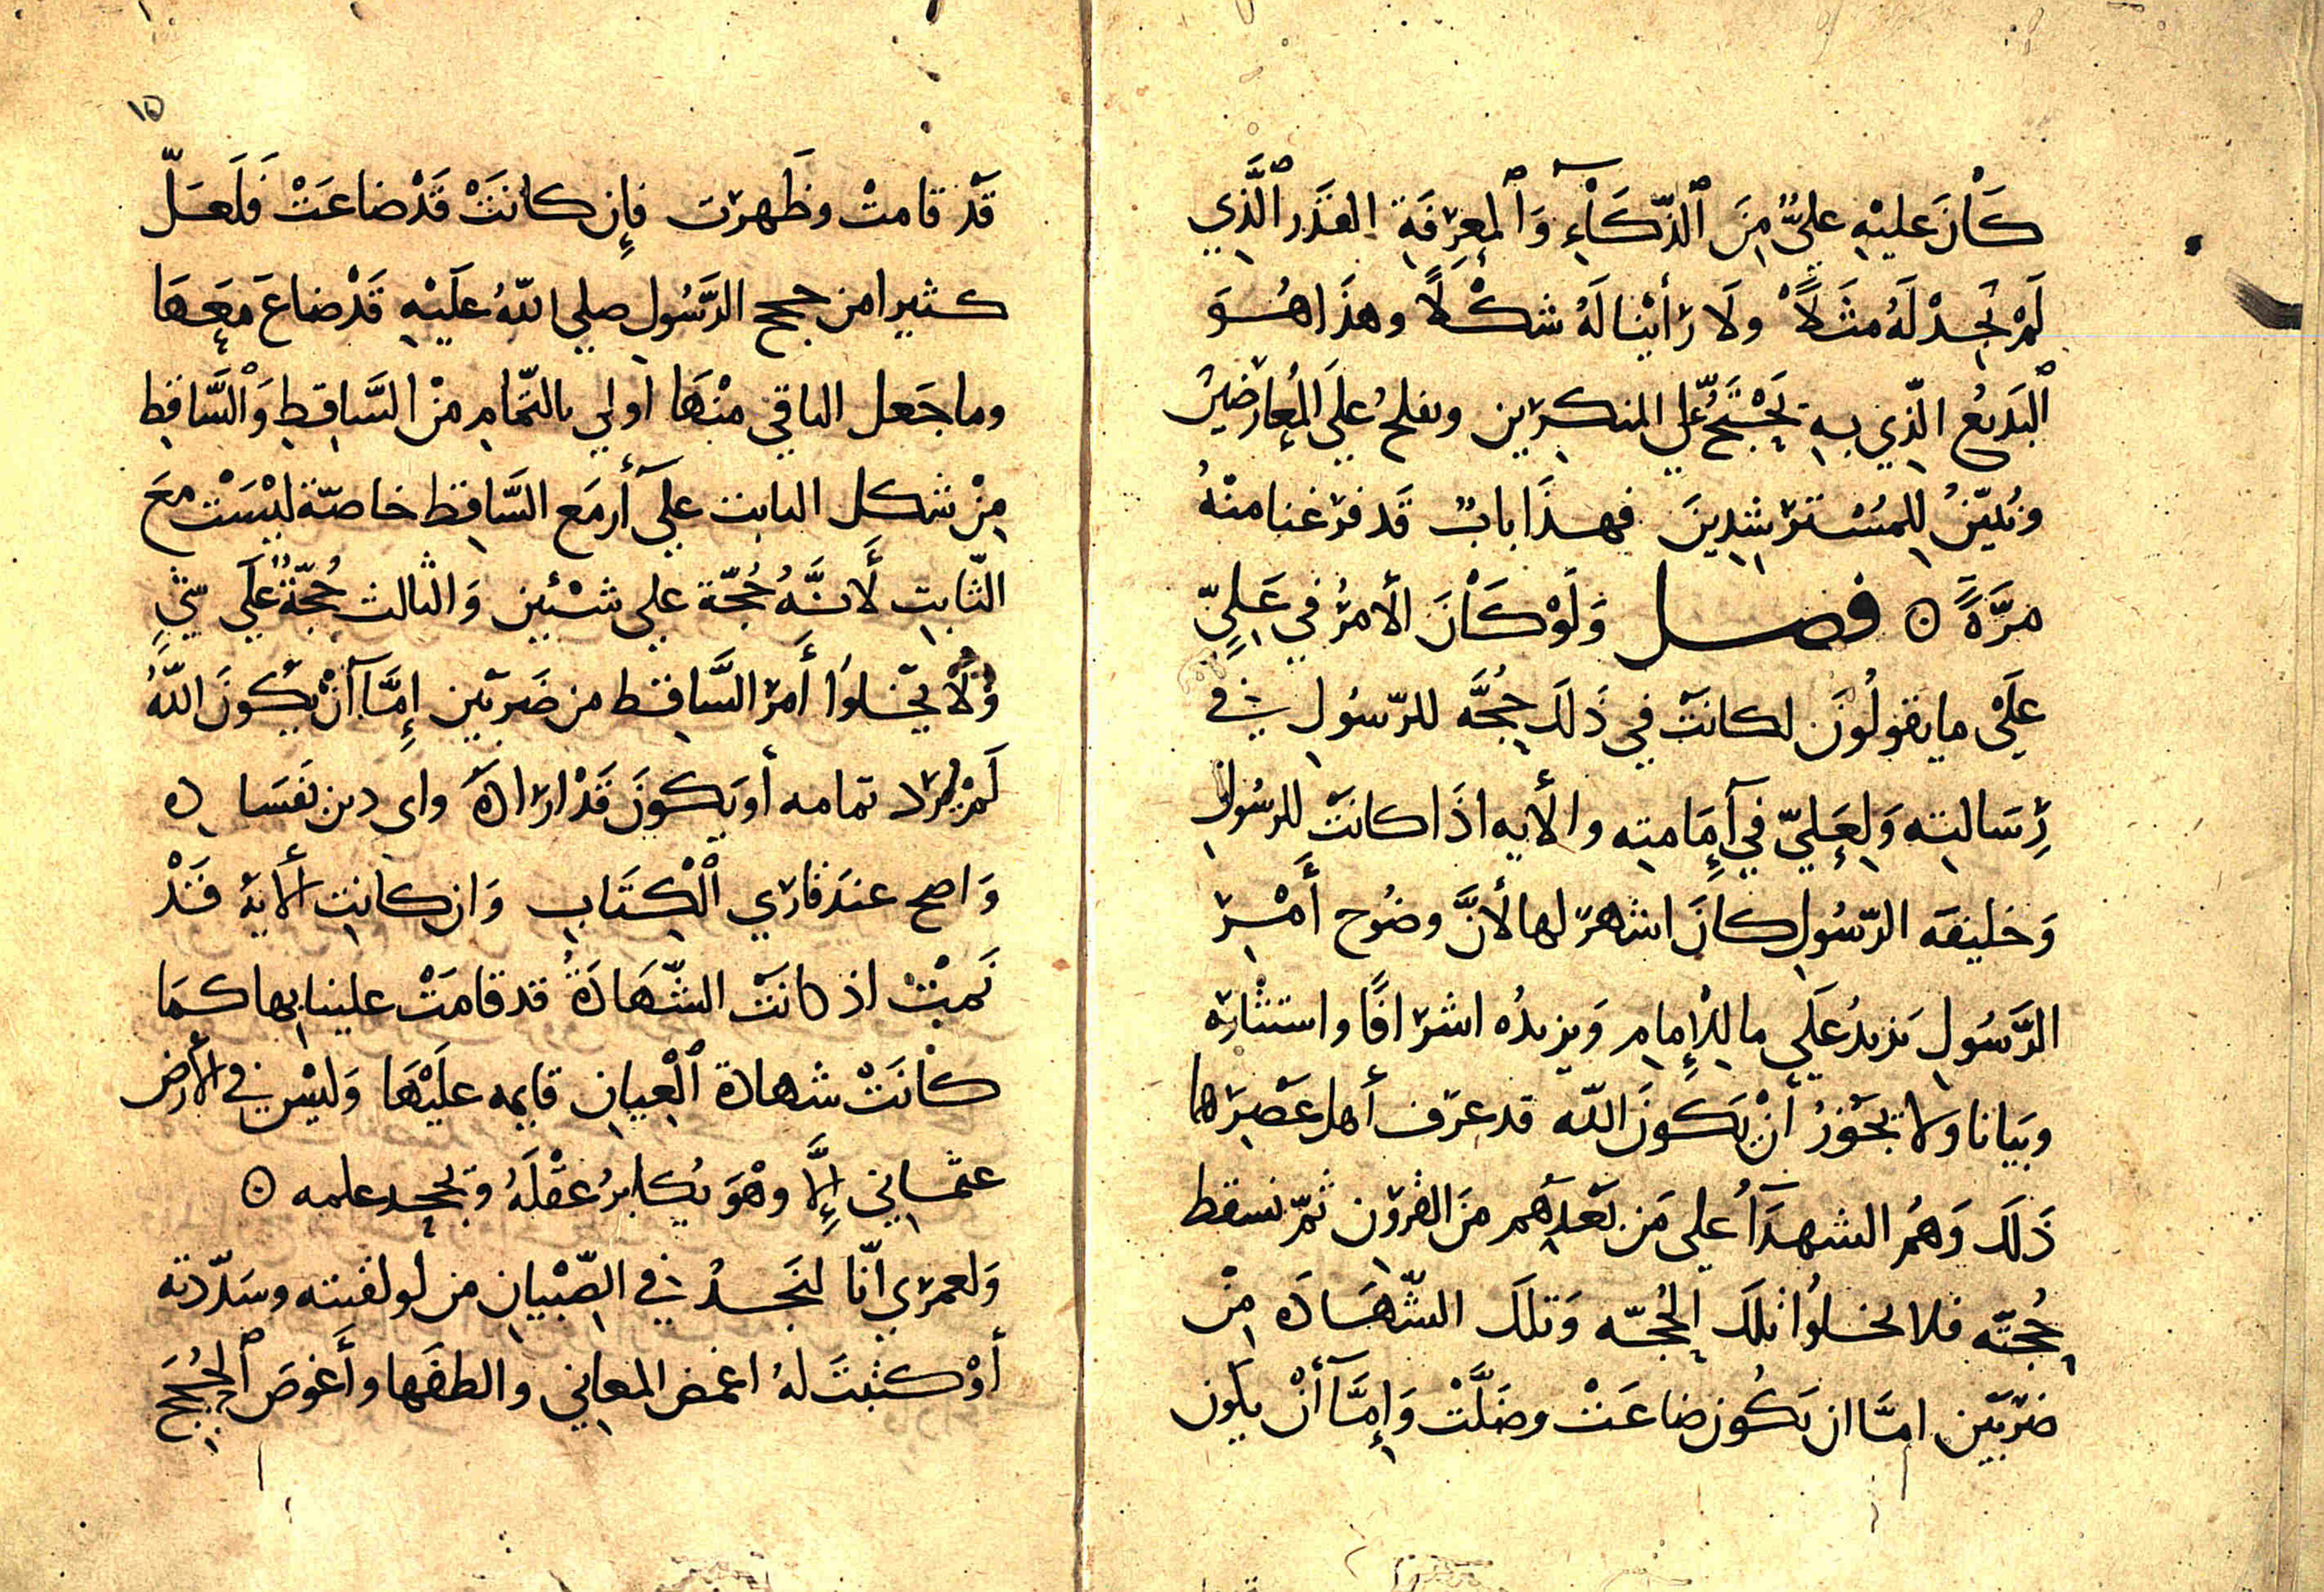 كَانَ عليْهِ عليٌّ مِنَ ٱلذّكَآءِ وَٱلمعرِفَةِ القَدَر ٱلَّذِي
لَمْ نَجِدْ لَهُ مثَلًا ولَا رَأَيْنا لَهُ شكْلًا وهذَا هُوَ
ٱلبَديعُ الّذِي بِهِ نَحْتَجُّ عَلَى المنكرين ونفلحُ علَى المُعارضينَ
ونُبيّنُ لِلمُسْترشِدِينَ فهذَا بابٌ قَد فرغنا منْهُ
مَرَّةً ۞ فصل وَلَوْ كَانَ الأمْرُ في عَلِيٍّ
علَى ما يقولُونَ لكانَتْ فِي ذَلَك حُجَّه للرّسُولِ في
رِسَالته وَلِعَلِيّ في إِمَامته والأيه اذَا كانَتْ للرسُول
وَخليفه الرّسُولِ كانَ اشهر لها لأنَّ وضُوح أَمْرِ
الرَّسُولِ يَزيدُ علَي ما لِلإِمامِ وَيزيدُه اشرافًا واستنارة
وبَيانا ولا يَجُوزُ أنْ يَكونَ اللّه قد عرّف أهل عَصْرها
ذَلَك وَهُمُ الشهدَآءُ علي مَن بَعْدَهُم مِنَ القرون ثمّ نسقط
حُجّتَه فلا تخلوا تلَك الحُجّه وَتلَك الشّهَادَه مِنْ
ضرْبَيَن امَّا ان تَكُون ضاعَتْ وضَلَّتْ وَإِمَّآ أنْ يكون
١٥
قَدْ قامتْ وظَهرَت فإِن كانَتْ قَدْ ضاعَتْ فَلَعَلّ
كثيرا من حجج الرَّسُول صلي اللّهُ علَيْهِ قَدْ ضاعَ معَهَا
وما جَعل الباقي منْهَا اولي بالتّمامِ منْ السَّاقِطِ وَٱلسَّاقِطِ
مِنْ شكل الثابت علي أَمَع السَّاقِط خاصّة ليْسَتْ معَ
الثّابتِ لأَنَّهُ حُجّة علي شيْئين وَالثالث حُجّةٌ علَي شيْءٍ
وَلَا يَخلوا أَمرُ السَّاقِط من ضَربَيْن إِمَّا آنْ يكُونَ اللّهُ
لَمْ يُرد تمامه أو يَكونَ قَدْ ارَادَهُ واي دين
وَاضح عندَ قارَي ٱلْكِتَابِ وَان كانتِ الأيَةُ قَدْ
تَمَّتْ اذ كانَتْ الشّهَادَةُ قد قامَتْ علينا بِها كمَا
كانَتْ شهادة ٱلْعِيانِ قايمه علَيْهَا وَليْس في الأَرض
عثمانِي إِلَّا وهْوَ يُكابرُ عقْلَهُ ويجحد علمه ۞
وَلعمري انّا لنَجدُ في الصِّبْيان من لو لقنته وسَدّدته
أَوْ كتبْتَ لهُ اغمض المعاني والطفَها وأَغوصَ ٱلحُجَجَ